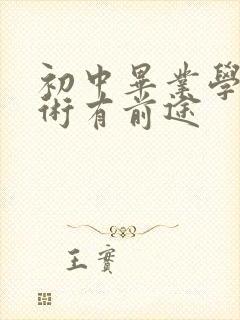 初中畢業學
術有前途
王實